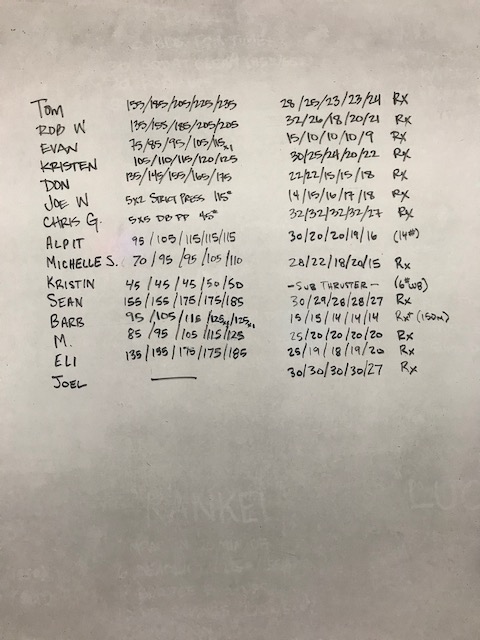 TOM 155/185/205/225/235 28/25/23/23/24 Rx
ROB W 135/155/185/205/205 32/26/18/20/21 Rx
EVAN 75/85/95/105/115x1 15/10/10/10/9 Rx
KRISTEN 105/110/115/120/125 30/25/24/20/22 Rx
DON 135/145/155/165/175 22/22/15/15/18 Rx
JOE W 5x2 STRICT PRESS 115# 14/15/16/17/18 Rx
CHRIS G. 5x5 DB PP 45# 32/32/32/32/27 Rx
ALPIT 95/105/115/115/115 30/20/20/19/16 (14#)
MICHELLE S. 70/95/95/105/110 28/22/18/20/15 Rx
KRISTIN 45/45/45/50/50 -SUB THRUSTER- (6#WB)
SEAN 155/155/175/175/185 30/29/28/28/27 Rx
BARB 95/105/115/125x1/125x1 15/15/14/14/14 Rx* (150m)
M. 85/95/105/115/125 25/20/20/20/20 Rx
ELI 135/155/175/175/185 25/19/18/19/20 Rx
JOEL — 30/30/30/30/27 Rx
RANKEL
LUC